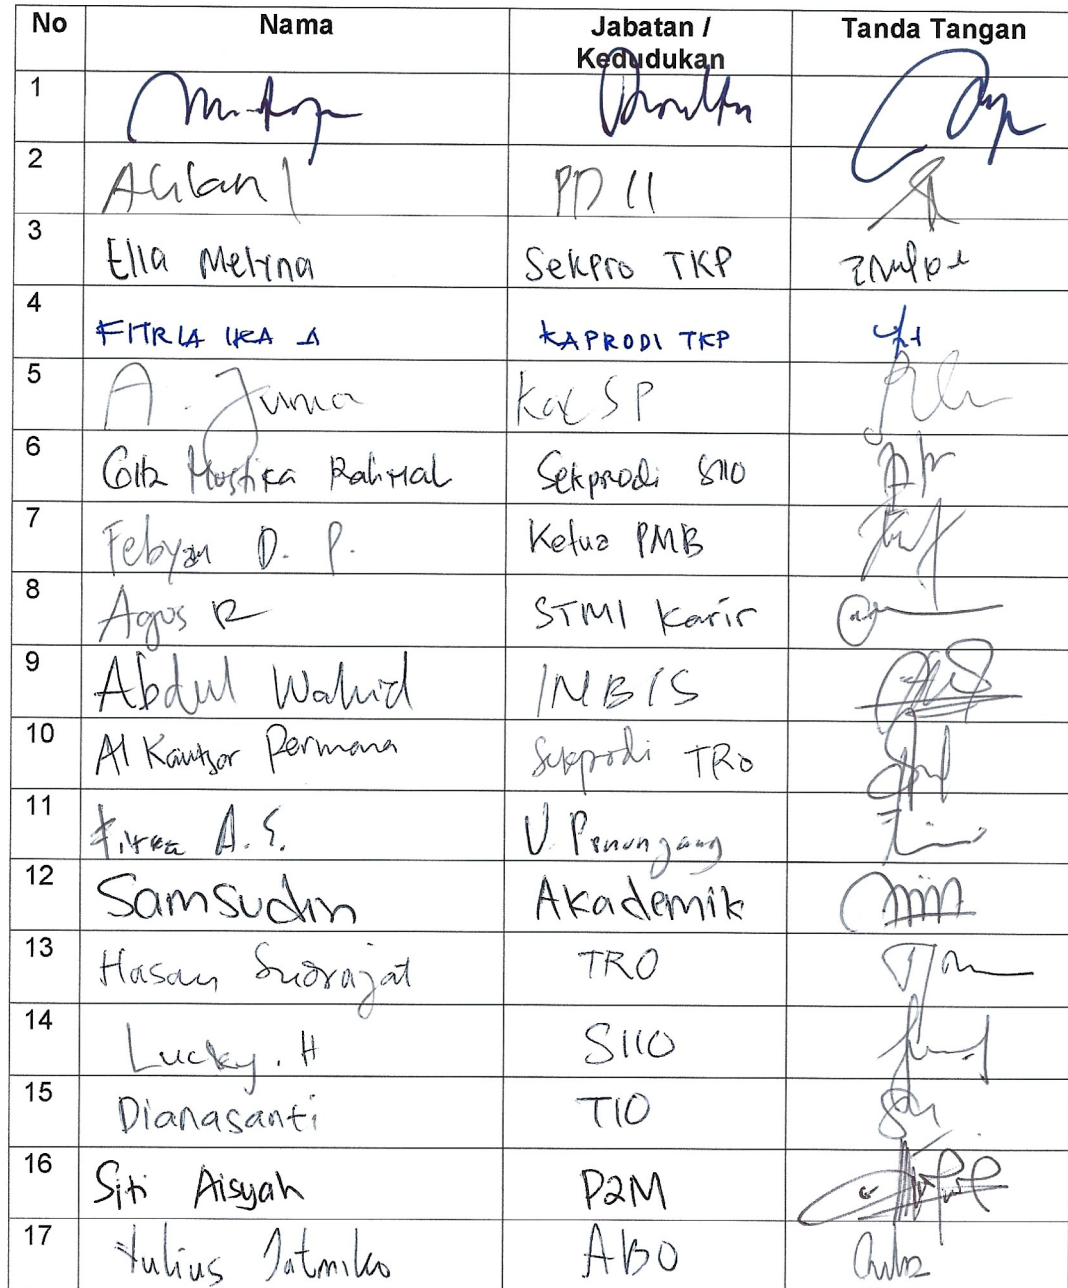 No Nama Jabatan / Kedudukan Tanda Tangan
1
2 PD II
3 Ella Melyna Sekpro TKP
4 FITRIA IKA A KAPRODI TKP
5 A. Juma SP
6 Mustika Sekprodi SIIO
7 Febyan D. P. Ketua PMB
8 Agus R STMI Karir
9 Abdul Wahid INBIS
10 Al Kautsar Permana Sekprodi TRO
11 A. S. U. Penunjang
12 Samsudin Akademik
13 Hasan Sudrajat TRO
14 Lucky. H SIIO
15 Dianasanti TIO
16 Siti Aisyah P2M
17 Yulius Jatmiko ABO